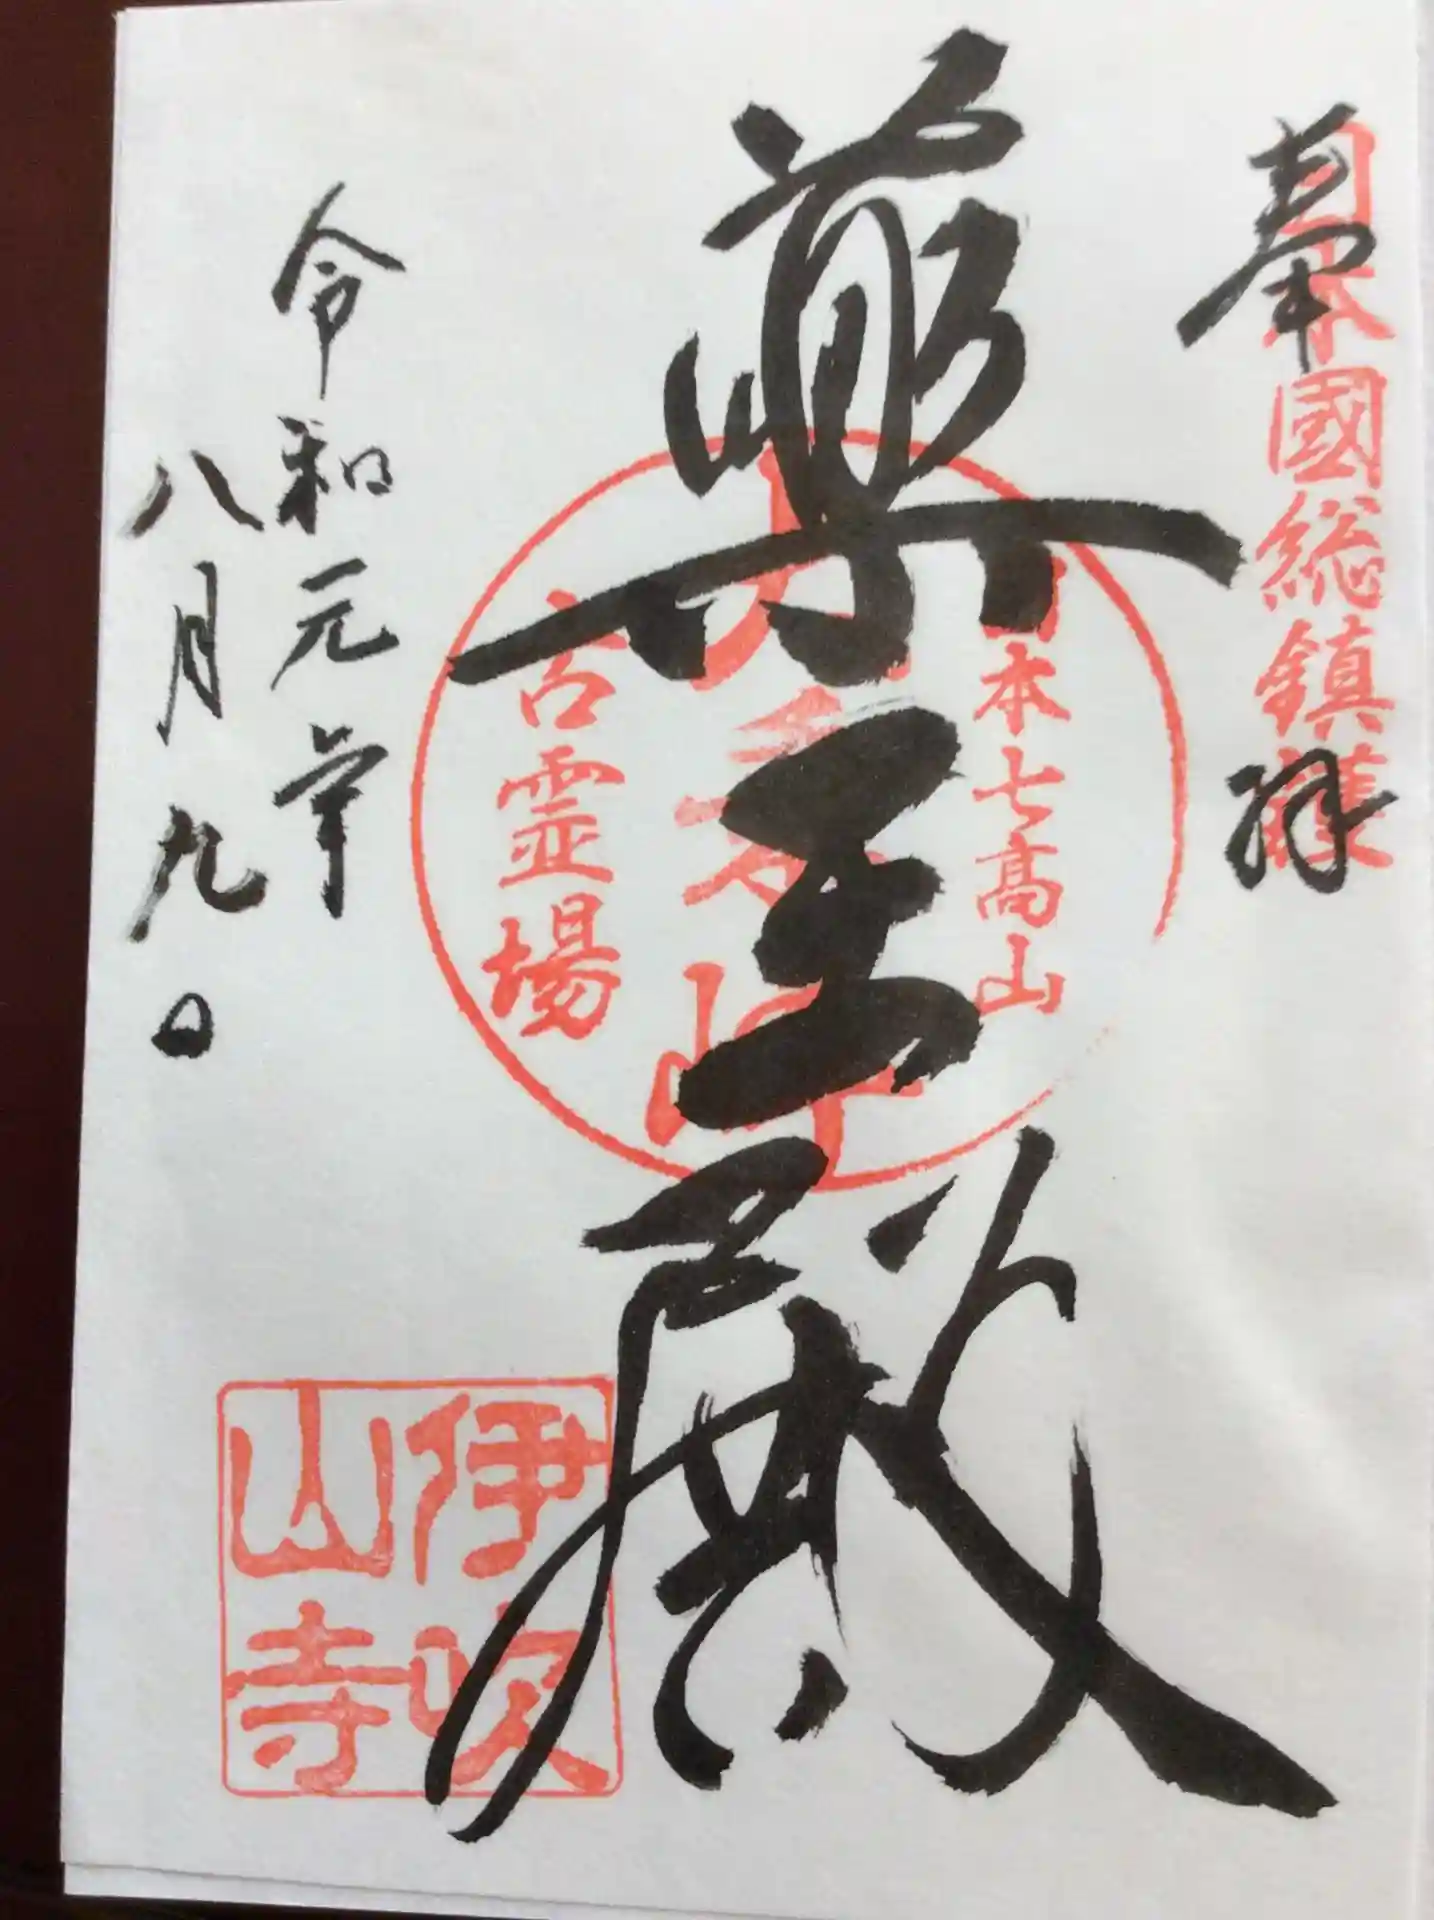 奉拝
日本國総鎮護
薬王殿
日本七高山
大乗峰
古霊場
令和元年
八月九日
伊吹
山寺